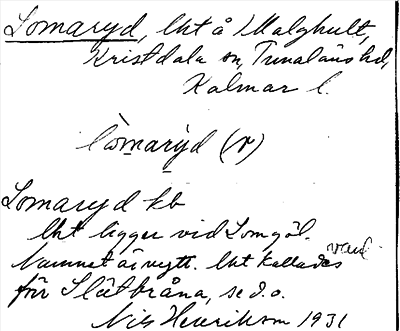 Lomaryd, lht å Malghult,
Kristdala sn, Tunaläns hd,
Kalmar l.
lòmarỳd (r)
Lomaryd kb
lht ligger vid Lomgöl.
Namnet är nytt. lht kallades
förr Slätbråna, se d.o.
Nils Henrikson 1931